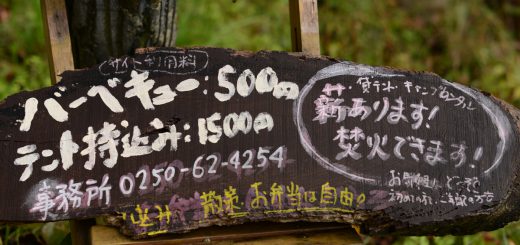 サイト利用料
バーベキュー:500円
テント持込み:1500円
事務所 0250-62-4254
散策 お弁当は自由。
貸テント キャンプ
薪あります!
焚火できます!